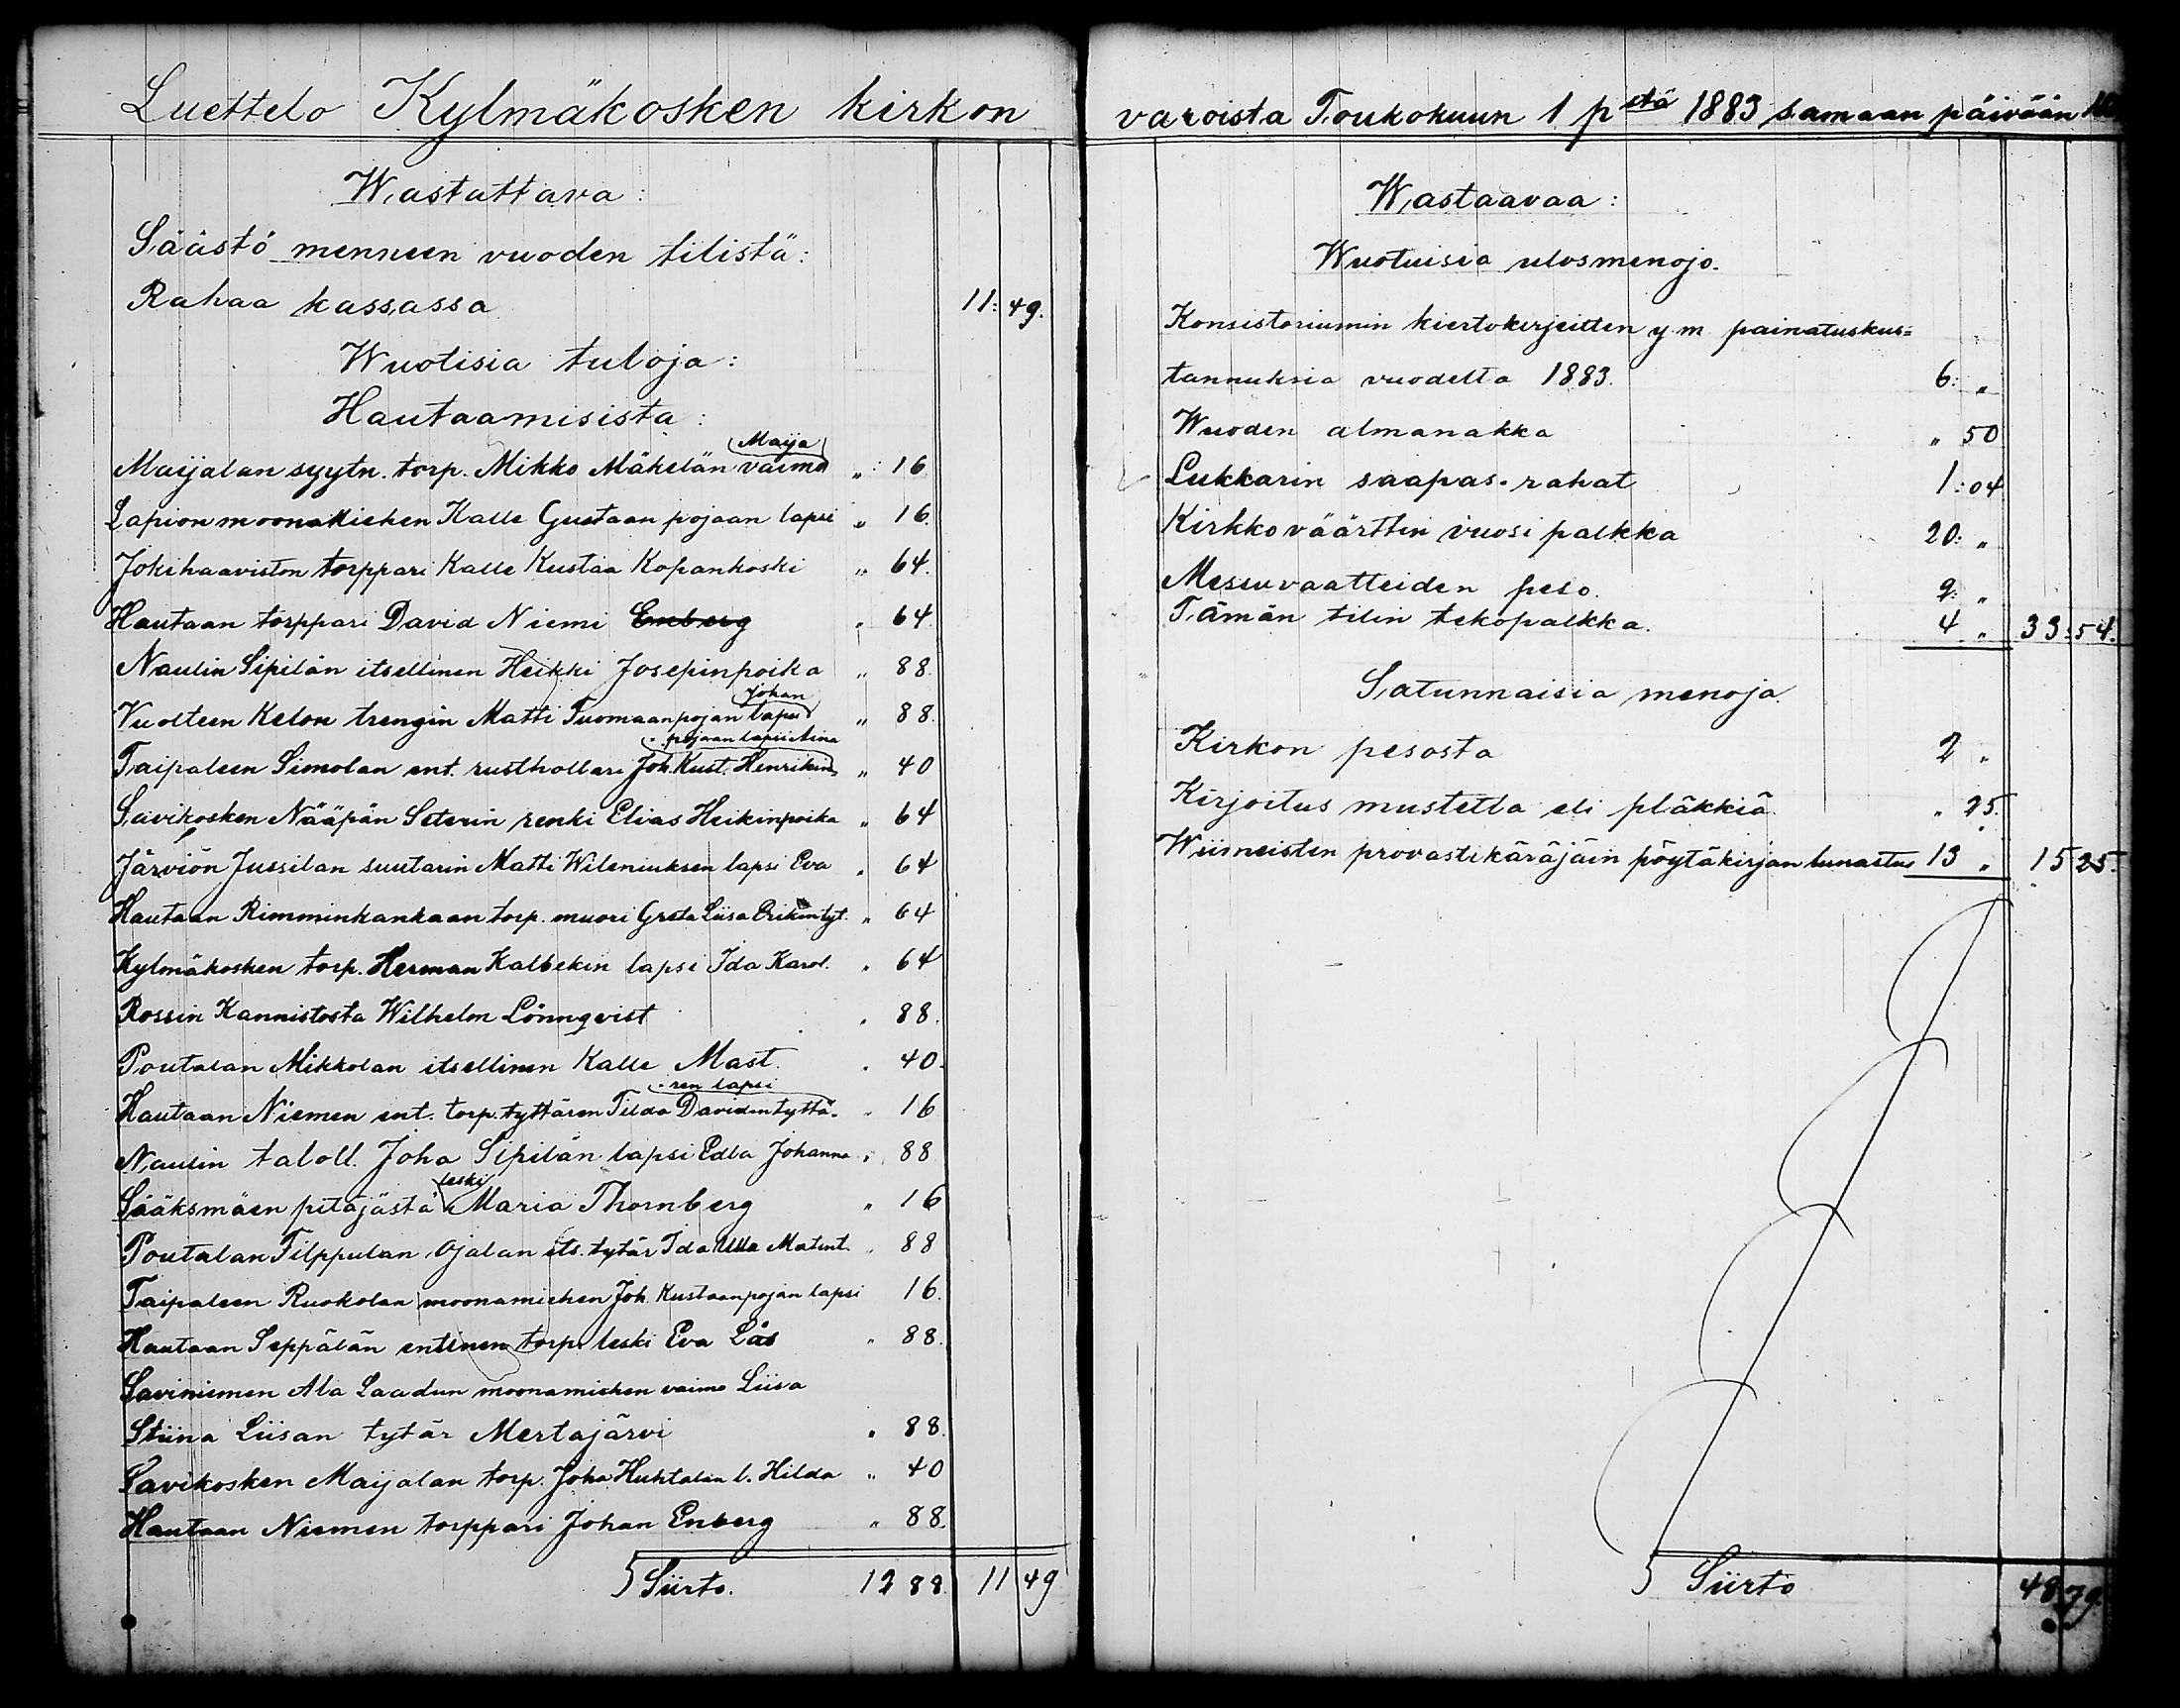 Luettelo Kylmäkosken kirkon
Wastattava:
Säästö menneen vuoden tilistä:
Rahaa kassassa 11: 49.
Wuotisia tuloja:
Hautaamisista:
Maija
Maijalan syytn. torp. Mikko Mäkelän vaimo „: 16
Lapion moonamiehen Kalle Gustaan pojaan lapsi „ 16.
Jokihaaviston torppari Kalle Kustaa Kopankoski „ 64.
Hautaan torppari David Niemi Enberg „ 64
Naulin Sipilän itsellinen Heikki Josepinpoika „ 88.
Johan
Vuolteen Kelon trengin Matti Tuomaanpojan lapsi „ 88.
pojaan lapsi Aina
Taipaleen Simolan ent. rusthollari Joh. Kust. Henrikin „ 40
Savikosken Nääpän Seterin renki Elias Heikinpoika „ 64
Järviön Jussilan suutarin Matti Wileniuksen lapsi Eva „ 64
Hautaan Rimminkankaan torp. muori Greta Liisa Erikintyt. „ 64
Kylmäkosken torp. Herman Kalbekin lapsi Ida Karol. „ 64
Rossin Kannistosta Wilhelm Lönnqvist „ 88.
Poutalan Mikkolan itsellinen Kalle Mast. „ 40.
ren lapsi
Hautaan Niemen ent. torp. tyttären Tilda Davidintyttä- „ 16
Naulin taloll. Joha Sipilän lapsi Edla Johanna „ 88
leski
Sääksmäen pitäjästä Maria Thornberg „ 16
Poutalan Filppulan Ojalan its. tytär Ida Ulla Matint. „ 88
Taipaleen Ruokolan moonamiehen Joh. Kustaanpojan lapsi 16.
Hautaan Seppälän entinen torp. leski Eva Lås „ 88.
Saviniemen Ala Laadun moonamiehen vaimo Liisa
Stiina Liisan tytär Mertajärvi „ 88.
Savikosken Maijalan torp. Joha Huhtalan l. Hilda „ 40
Hautaan Niemen torppari Johan Enberg „ 88.
Siirto. 12 88. 11 49
varoista Toukokuun 1 pstä 1883 samaan päivään
Wastaavaa:
Wuotuisia ulosmenojo.
Konsistoriumin kiertokirjeitten y m painatuskus=
tannuksia vuodelta 1883. 6: „
Wuoden almanakka „ 50
Lukkarin saapas-rahat 1:04
Kirkkoväärttin vuosi palkka 20: „
Messuvaatteiden peso. 2: „
Tämän tilin tekopalkka. 4 „ 33:54.
Satunnaisia menoja.
Kirkon pesosta 2 „
Kirjoitus mustetta eli pläkkiä „ 25.
Wiimeisten provastikäräjäin pöytäkirjan lunastus 13 „ 15 25.
Siirto 48 79.